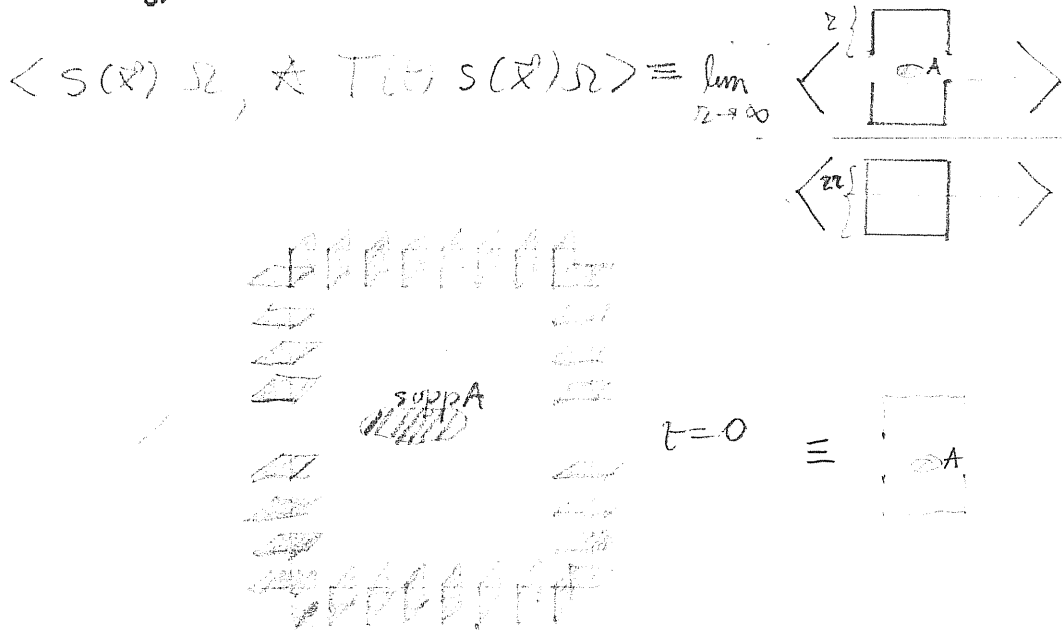 < S(x⃗) Ω, A T(t) S(x⃗) Ω > ≡ lim r→∞
r
A
2r
supp A
t=0 ≡ A